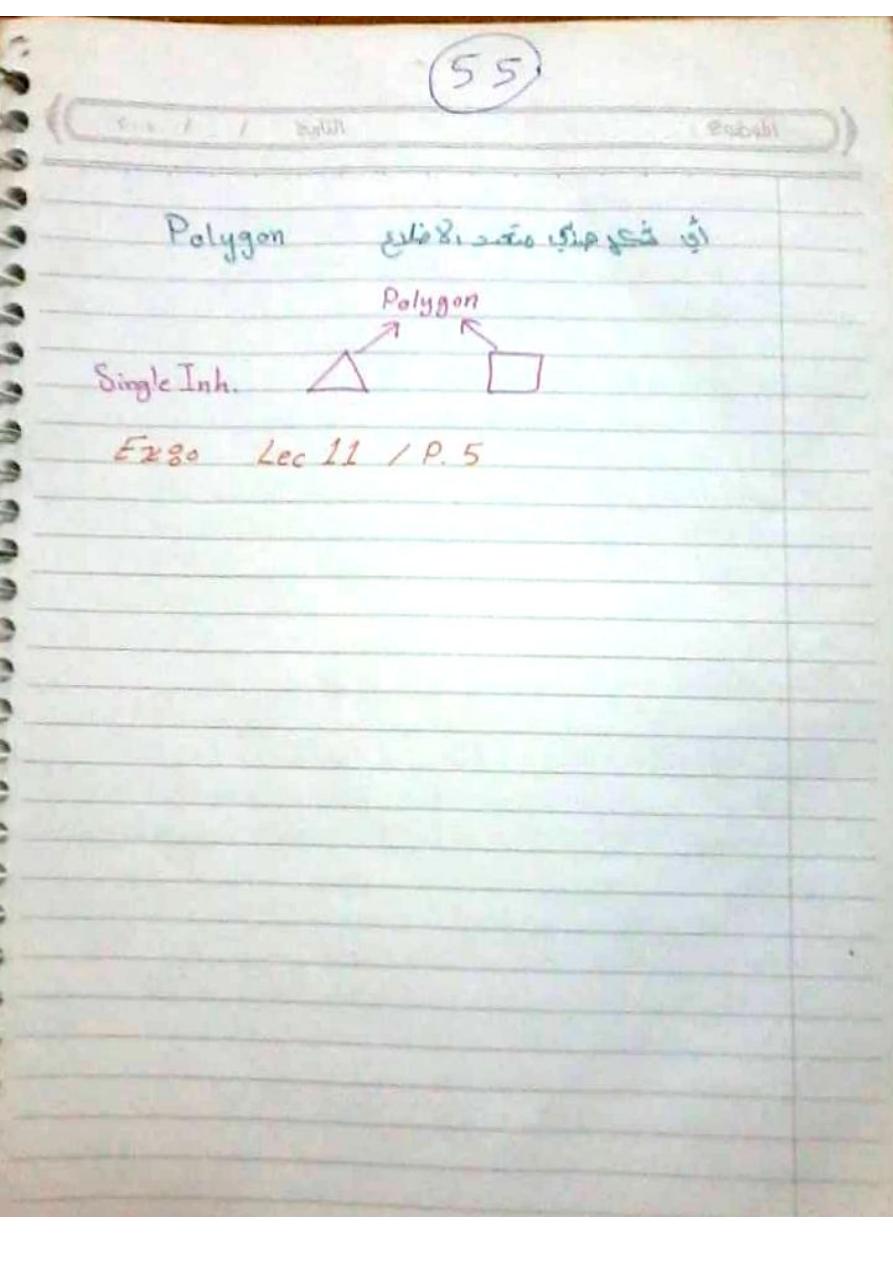 55
الموضوع التاريخ / / ٢٠٠
Polygon أي شكل هندسي متعدد الاضلاع
Polygon
Single Inh.
Ex:- Lec 11 / P. 5